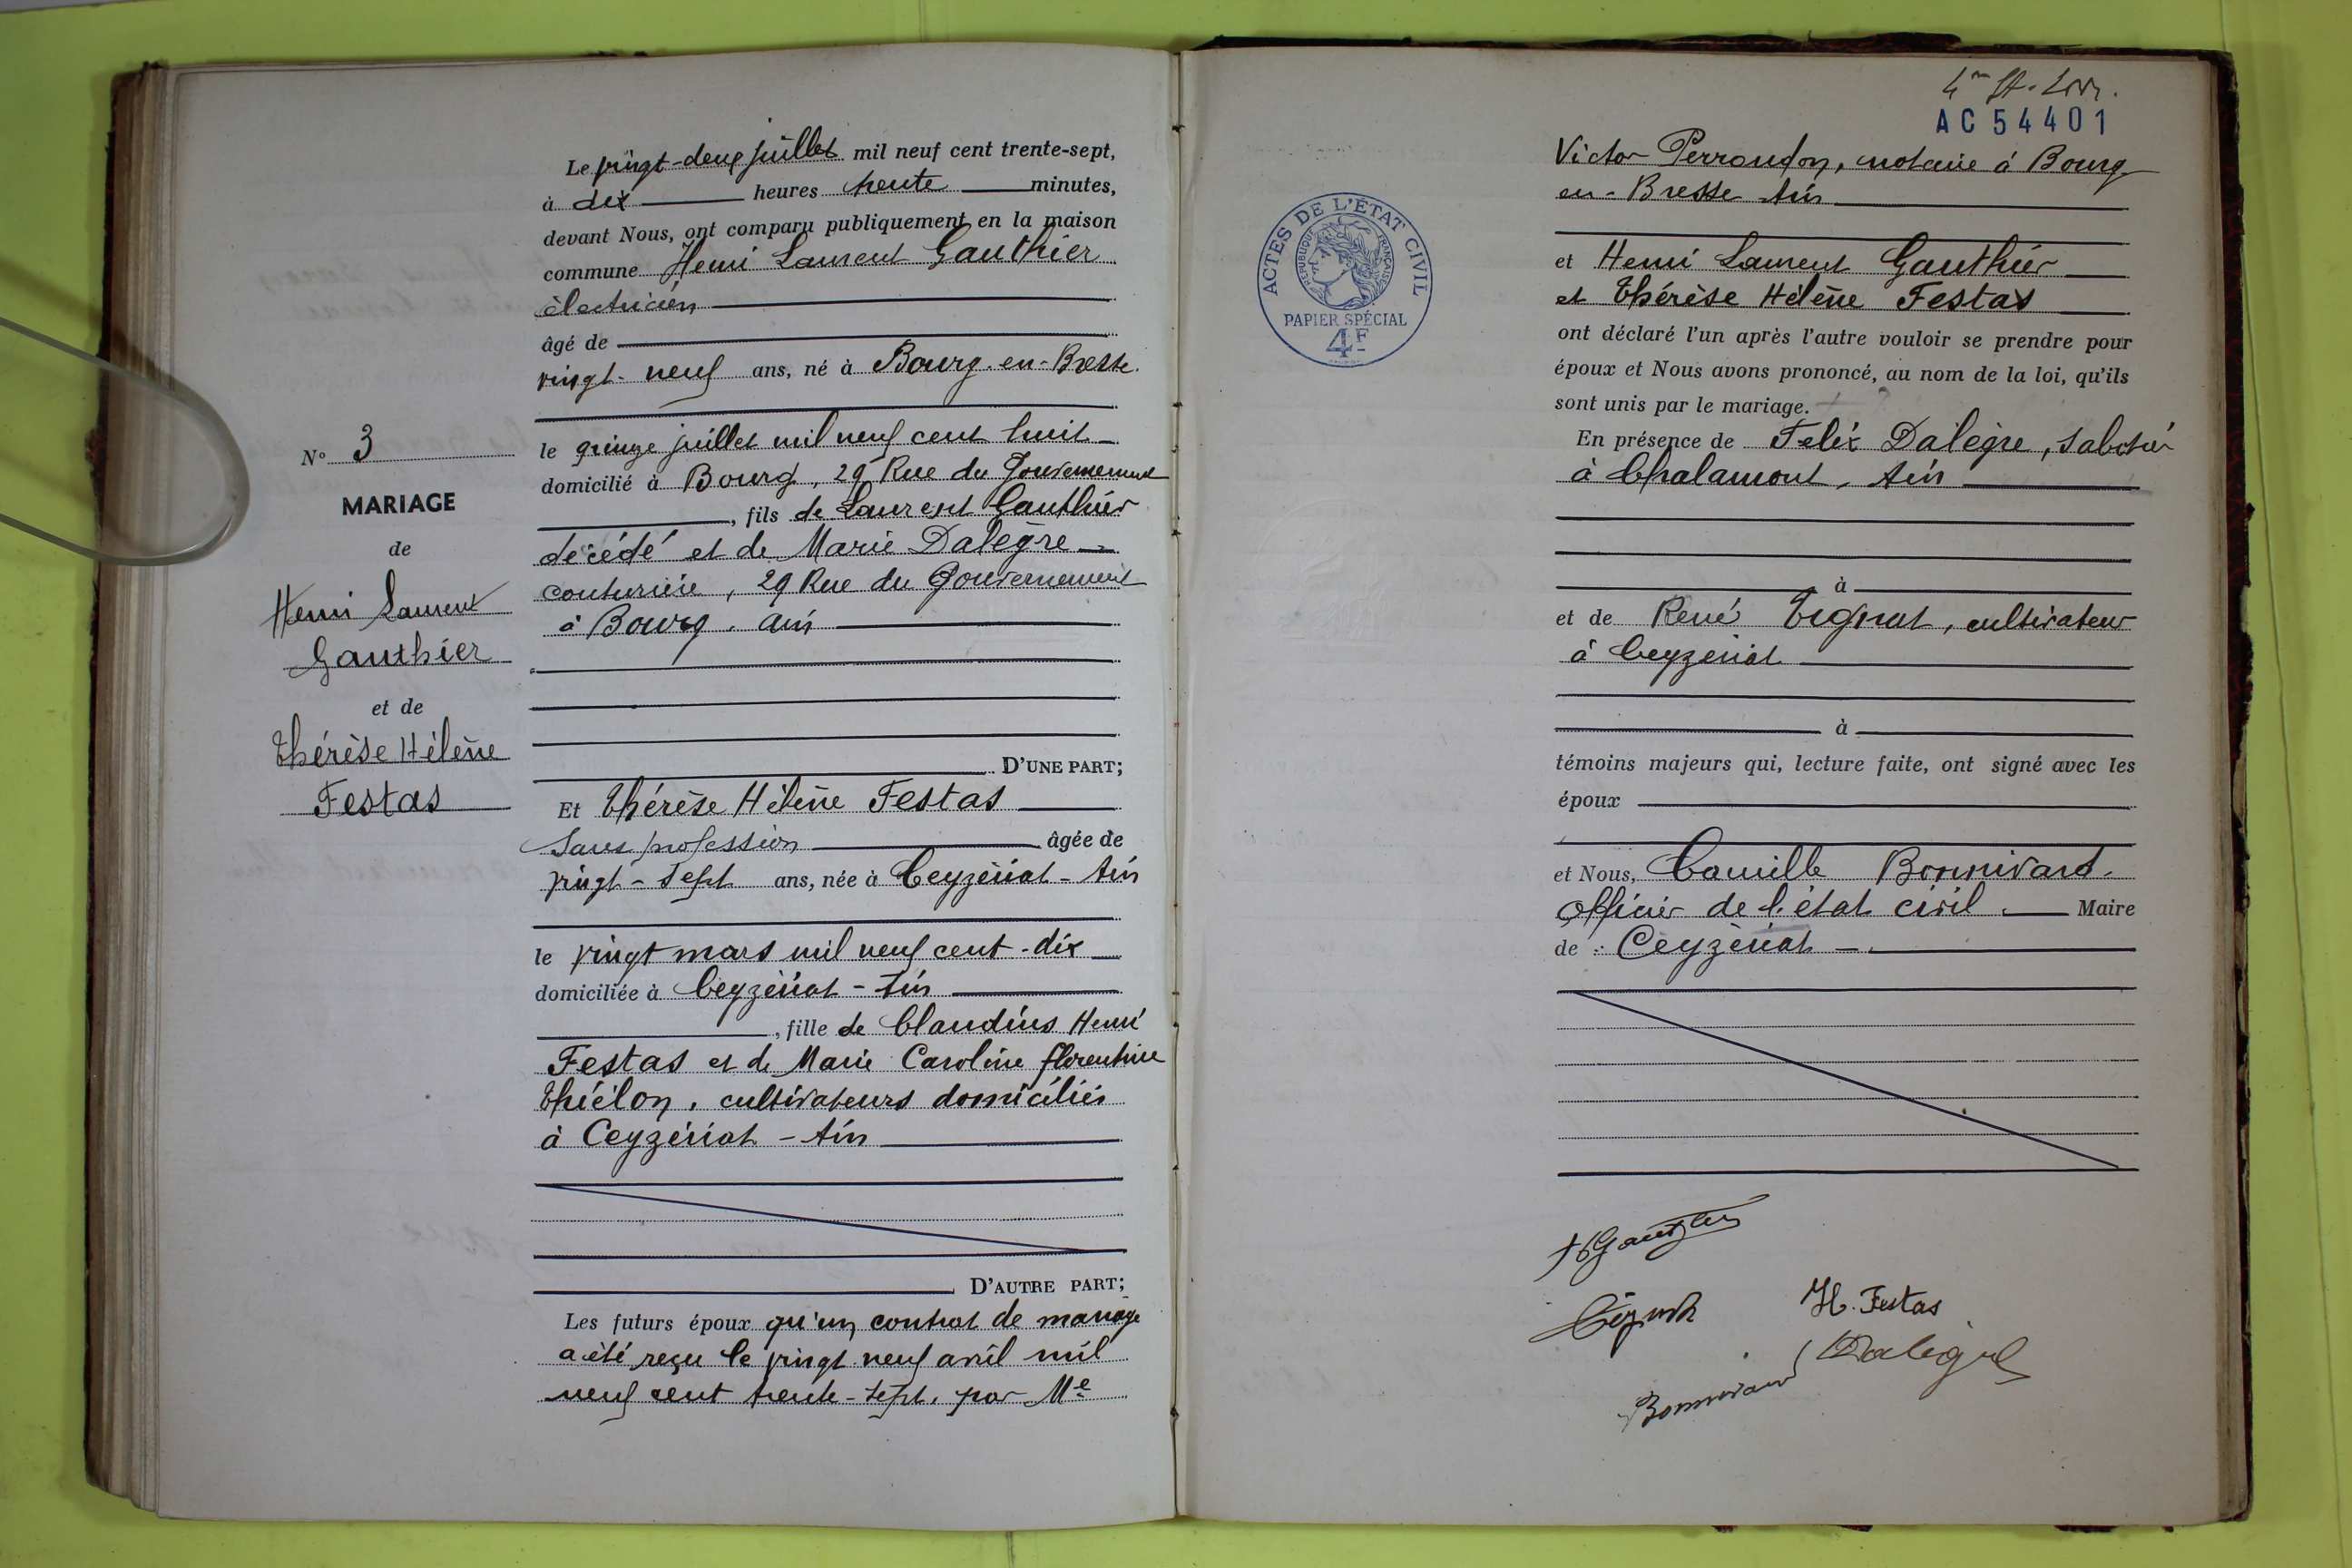 N° 3
MARIAGE
de
Henri Laurent
Gauthier
et de
Thérèse Hélène
Festas
Le vingt-deux juillet mil neuf cent trente-sept,
à dix heures trente minutes,
devant Nous, ont comparu publiquement en la maison
commune Henri Laurent Gauthier
électricien
âgé de
vingt-neuf ans, né à Bourg-en-Bresse
le quinze juillet mil neuf cent huit
domicilié à Bourg, 29 Rue du Gouvernement
, fils de Laurent Gauthier
décédé et de Marie Dalègre
couturière, 29 Rue du Gouvernement
à Bourg. Ain
D'UNE PART;
Et Thérèse Hélène Festas
Sans profession âgée de
vingt-sept ans, née à Ceyzériat - Ain
le vingt mars mil neuf cent-dix
domiciliée à Ceyzériat - Ain
, fille de Claudius Henri
Festas et de Marie Caroline Florentine
Thiélon, cultivateurs domiciliés
à Ceyzériat - Ain
D'AUTRE PART;
Les futurs époux qu'un contrat de mariage
a été reçu le vingt neuf avril mil
neuf cent trente-sept, par Me
AC 54401
Victor Perroudon, notaire à Bourg-
en-Bresse Ain
ACTES DE L'ÉTAT CIVIL
RÉPUBLIQUE FRANÇAISE
PAPIER SPÉCIAL
4F
et Henri Laurent Gauthier
et Thérèse Hélène Festas
ont déclaré l'un après l'autre vouloir se prendre pour
époux et Nous avons prononcé, au nom de la loi, qu'ils
sont unis par le mariage.
En présence de Felix Dalègre, sabotier
à Chalamont, Ain
à
et de René Tignat, cultivateur
à Ceyzériat
à
témoins majeurs qui, lecture faite, ont signé avec les
époux
et Nous, Camille Bonnivard.
Officier de l'état civil. Maire
de : Ceyzériat
HGauthier
H. Festas
Dalègre
Bonnivard